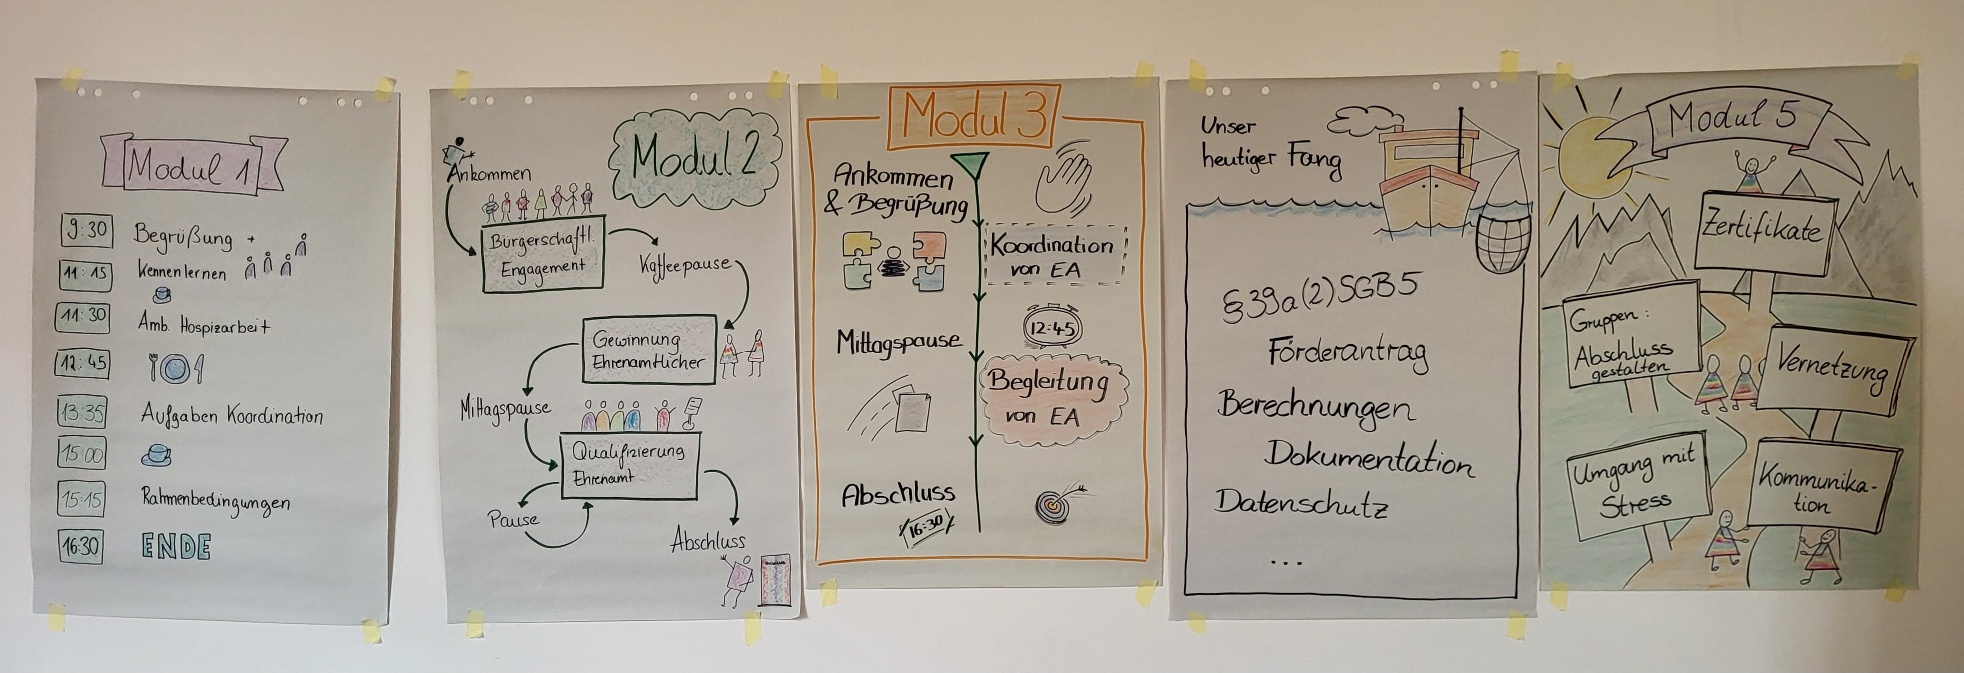 Modul 1
9:30
Begrüßung +
Kennenlernen
11:15
11:30
Amb. Hospizarbeit
12:45
13:35
Aufgaben Koordination
15:00
15:15
Rahmenbedingungen
16:30
ENDE
Modul 2
Ankommen
Bürgerschaftl.
Engagement
Kaffeepause
Gewinnung
Ehrenamtlicher
Mittagspause
Qualifizierung
Ehrenamt
Pause
Abschluss
Modul 3
Ankommen
& Begrüßung
Koordination
von EA
12:45
Mittagspause
Begleitung
von EA
Abschluss
16:30
Unser
heutiger Fang
§39a(2)SGB5
Förderantrag
Berechnungen
Dokumentation
Datenschutz
...
Modul 5
Zertifikate
Gruppen:
Abschluss
gestalten
Vernetzung
Umgang mit
Stress
Kommunika-
tion